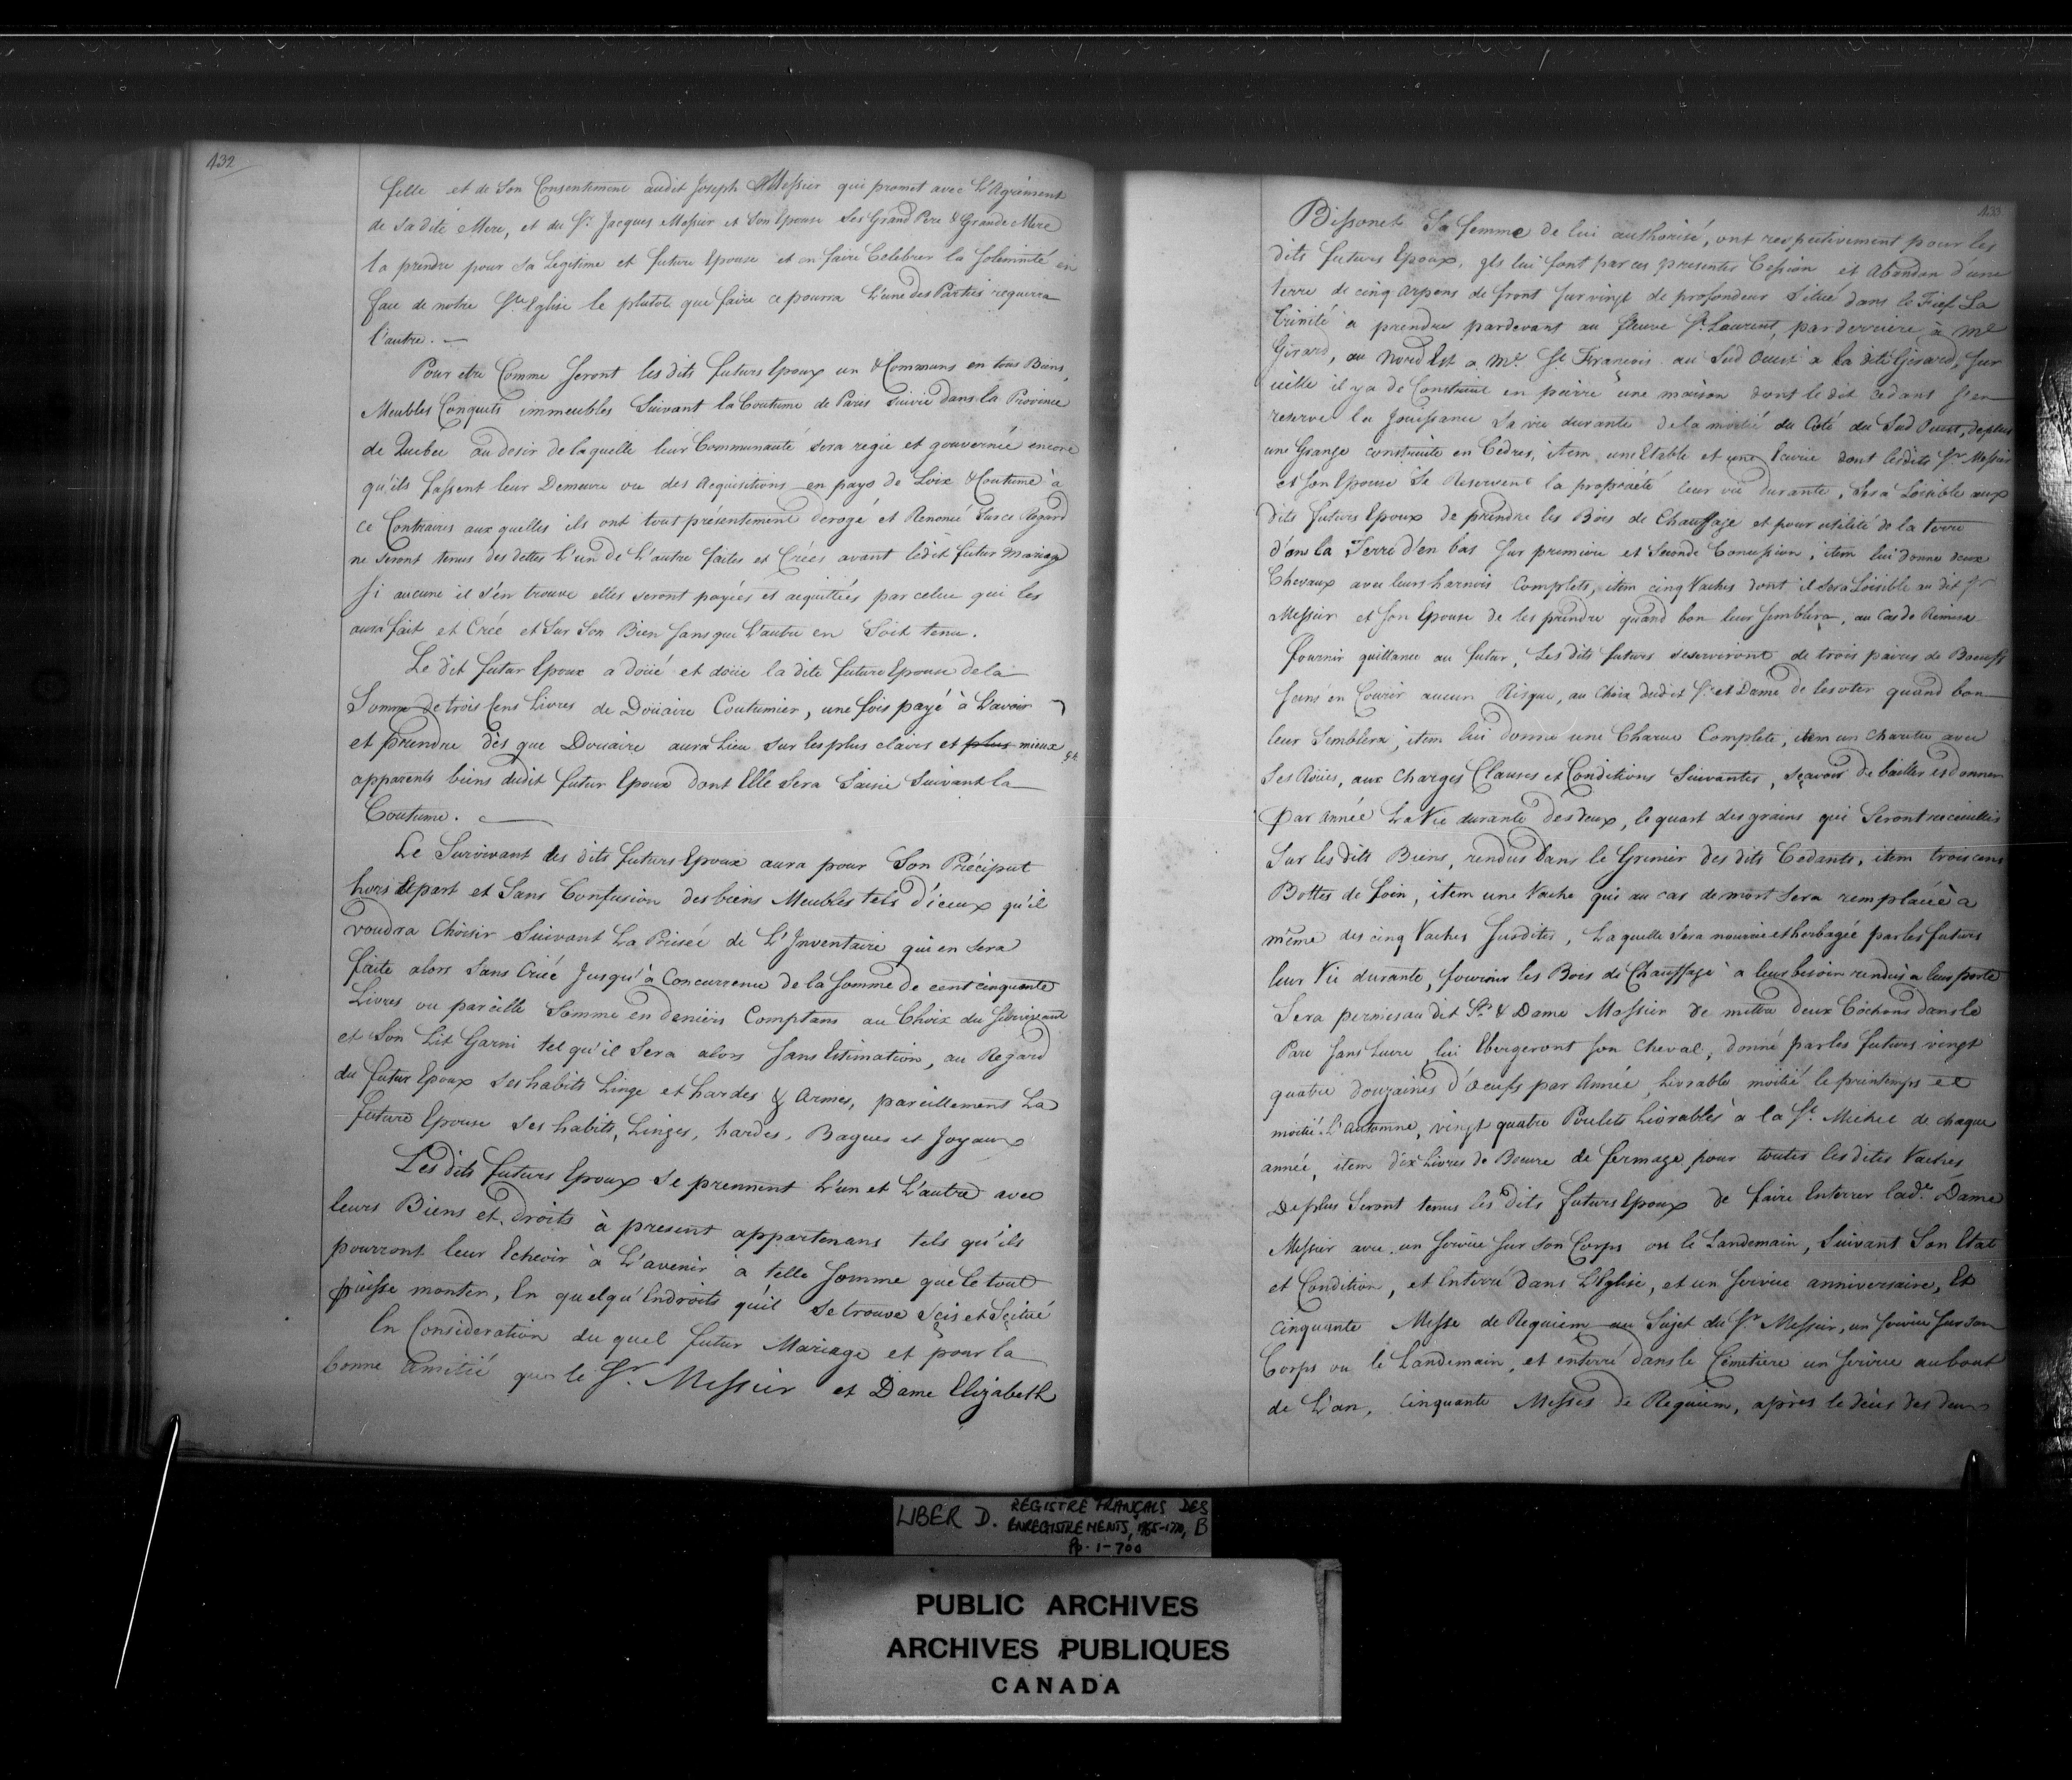 432
fille et de Son Consentement audit Joseph Messier qui promet avec L'Agrément
de Sa dite Mere, et du Sr. Jacques Messier et Son Epouse Ses Grand Pere & Grande Mere
la prendre pour Sa Legitime et future Epouse et en faire Celebrer la Solemnité en
face de notre Ste. Eglise le plutot que faire ce pourra L'une des Parties requerra
l'autre. —
Pour etre Comme Seront les dits futurs Epoux un & Communs en tous Biens,
Meubles Conquets immeubles Suivant la Coutume de Paris Suivie dans la Province
de Quebec au desir de laquelle leur Communauté Sera regie et gouvernée encore
qu'ils fassent leur Demeure ou des Acquisitions en pays de Loix & Coutume à
ce Contraires aux quelles ils ont tout présentement derogé et Renoncé Sur ce Regard
ne Seront tenus des dettes L'un de L'autre faites et Créés avant ledit futur Mariage
Si aucune il s'en trouve elles seront payées et acquittées par celui qui les
aura fait et Créé et Sur Son Bien Sans que L'autre en Soit tenu.
Le dit futur Epoux a doüé et doüe la dite future Epouse de la
Somme de trois Cens Livres de Doüaire Coutumier, une fois payé à L'avoir
et prendre dès que Douaire aura Lieu Sur les plus clairs et plus mieux
apparents biens dudit futur Epoux dont Elle Sera Saisie Suivant la
Coutume.
Le Survivant des dits futurs Epoux aura pour Son Préciput
hors Et part et Sans Confusion des biens Meubles tels d'iceux qu'il
voudra Choisir Suivant La Prisée de L'Inventaire qui en Sera
faite alors Sans Criée Jusqu'à Concurrence de la Somme de cent cinquante
Livres ou pareille Somme en deniers Comptans au Choix du Survivant
et Son Lit Garni tel qu'il Sera alors Sans Estimation, au Regard
du futur Epoux Ses habits Linge et hardes & Armes, pareillement La
future Epouse Ses habits, Linges, hardes, Bagues et Joyaux
Les dits futurs Epoux Se prennent L'un et L'autre avec
leurs Biens et droits à present appartenans tels qu'ils
pourront leur Echeoir à L'avenir à telle Somme que le tout
puisse monter, En quelqu'Endroits qu'il Se trouve Scis et Scitué
En Consideration du quel futur Mariage et pour la
bonne Amitié que le Sr. Messier et Dame Elizabeth
433
Bissonet Sa femme de lui authorisé, ont respectivement pour les
dits futurs Epoux, ils lui font par ces presentes Cession et Abandon d'une
terre de cinq Arpens de front Sur vingt de profondeur Situé dans le Fief La
Trinité à prendre pardevant au fleuve St. Laurent, parderriere à Mr
Girard, au Nord Est a Mr. St. Francois au Sud Ouest a la dite Girard, Sur
icelle il y a de Construit en pierre une maison dont le dit Cedant S'en
reserve la Jouissance Sa vie durante de la moitié du Coté du Sud Ouest, de plus
une Grange construite en Cedres, item une Etable et une Ecurie dont les dits Sr. Messier
et Son Epouse Se Reservent la propriété leur vie durante, Sera Loisible aux
dits futurs Epoux de prendre les Bois de Chauffage et pour utilité de la terre
d'ans la Terre d'en bas Sur premiere et Seconde Concession, item lui donne deux
Chevaux avec leurs harnois Complets, item cinq Vaches dont il Sera Loisible au dit Sr
Messier et Son Epouse de les prendre quand bon leur Semblera, au Cas de Remise
fournir quittance au futur, Les dits futurs se serviront de trois paires de Boeufs
Sans en Courir aucun Risque, au Choix dudit Sr. et Dame de les oter quand bon
leur Semblera, item lui donne une Charue Complete, item un Charette avec
Ses Roües, aux Charges Clauses et Conditions Suivantes, Sçavoir de bailler et donner
Par Année La Vie durante des deux, le quart des grains qui Seront receuillis
Sur les dits Biens, rendus Dans le Grenier des dits Cedants, item trois cens
Bottes de foin, item une Vache qui au cas de mort Sera remplacée à
même des cinq Vaches Susdites, Laquelle Sera nourrie et herbagée par les futurs
leur Vie durante, fournir les Bois de Chauffage a leur besoin rendus a leur porte
Sera permis au dit Sr. & Dame Messier de mettre deux Cochons dans le
Parc Sans Suivre, lui Ebergeront Son Cheval, donné par les futurs vingt
quatre douzaines d'oeufs par Année, Livrable moitié le printemps et
moitié L'Automne, vingt quatre Poulets Livrables à la St. Michel de chaque
année, item dix Livres de Beurre de fermage pour toutes les dites Vaches
De plus Seront tenus les dits futurs Epoux de faire Enterrer lade. Dame
Messier avec un Service Sur Son Corps ou le Landemain, Suivant Son Etat
et Condition, et Enterré dans L'Eglise, et un Service anniversaire, Et
Cinquante Messe de Requiem au Sujet du Sr. Messier, un Service Sur Son
Corps ou le Landemain, et enterré dans le Cimetiere un Service au bout
de L'an, Cinquante Messes de Requiem, après le décès des deux
LIBER D. REGISTRE FRANÇAIS DES
ENREGISTREMENTS, 1765-1770, B
Pp. 1-700
PUBLIC ARCHIVES
ARCHIVES PUBLIQUES
CANADA